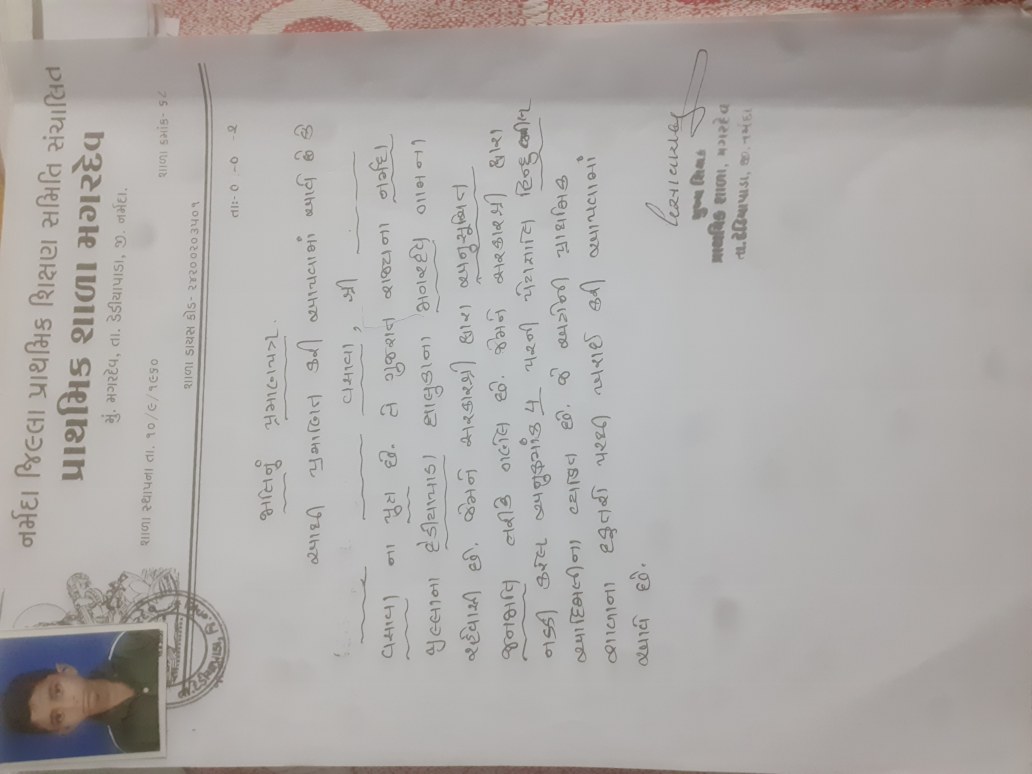 નર્મદા જિલ્લા પ્રાથમિક શિક્ષણ સમિતિ સંચાલિત
પ્રાથમિક શાળા મગરદેવ
મું. મગરદેવ, તા. ડેડીયાપાડા, જી. નર્મદા.
શાળા સ્થાપના તા. ૧૦/૯/૧૯૬૦ શાળા ક્રમાંક- ૬૮
શાળા ડાયસ કોડ- ૨૪૨૦૦૨૦૩૫૦૧
તાઃ-૦ -૦ -૨
જાતિનું પ્રમાણપત્ર.
આથી પ્રમાણિત કરી આપવામાં આવે છે કે
વસાવા, શ્રી
વસાવા ના પુત્ર છે. તે ગુજરાત રાજ્યના નર્મદા
જીલ્લાના દેડીયાપાડા તાલુકાના મગરદેવ ગામના
રહેવાસી છે. જેમને સરકારશ્રી દ્વારા અનુસૂચિત
જનજાતિ તરીકે ગણેલ છે. જેમને સરકારશ્રી દ્વારા
નક્કી કરેલ અનુક્રમાંક ૫ પરની પેટાજાતિ હિન્દુ ભીલ
આદિજાતીના વ્યક્તિ છે. જે અંગેની પ્રાથમિક
શાળાના દફતરી પરથી ખરાઈ કરી આપવામાં
આવે છે.
મુખ્ય શિક્ષક
પ્રાથમિક શાળા, મગરદેવ
તા.દેડિયાપાડા, જી.નર્મદા